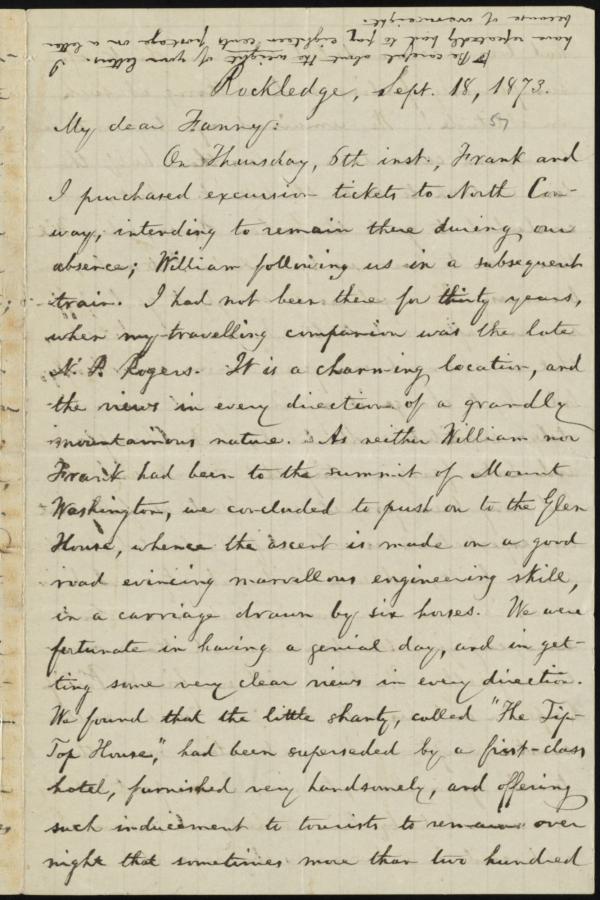 ☞ Be careful about the weight of your letters. I
have repeatedly had to pay eighteen cents postage on a letter
because of overweight.
Rockledge, Sept. 18, 1873.
57
My dear Fanny:
On Thursday, 6th inst., Frank and
I purchased excursion tickets to North Con-
way, intending to remain there during our
absence; William following us in a subsequent
train. I had not been there for thirty years,
when my travelling companion was the late
N. P. Rogers. It is a charming location, and
the views in every direction of a grandly
mountainous nature. As neither William nor
Frank had been to the summit of Mount
Washington, we concluded to push on to the Glen
House, whence the ascent is made on a good
road evincing marvellous engineering skill,
in a carriage drawn by six horses. We were
fortunate in having a genial day, and in get-
ting some very clear views in every direction.
We found that the little shanty, called "The Tip-
Top House," had been superseded by a first-class
hotel, furnished very handsomely, and offering
such inducement to tourists to remain over
night that sometimes more than two hundred